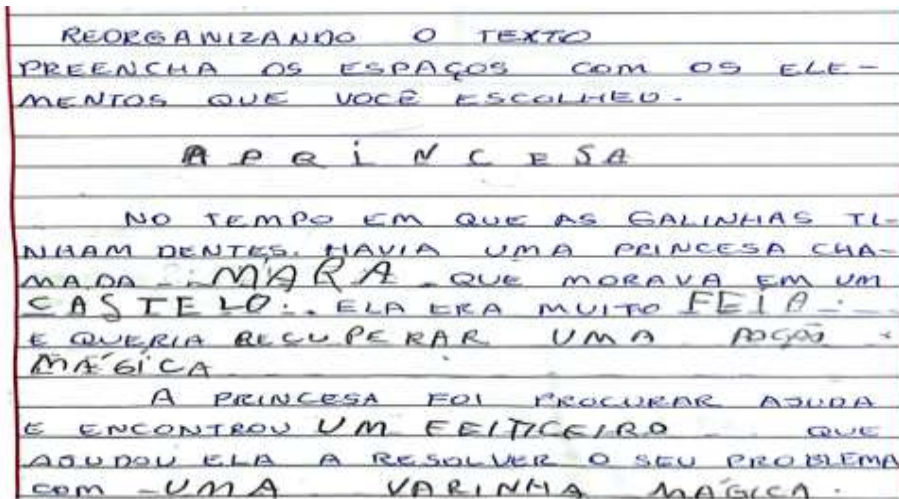 REORGANIZANDO O TEXTO
PREENCHA OS ESPAÇOS COM OS ELE-
MENTOS QUE VOCÊ ESCOLHEU.
A PRINCESA
NO TEMPO EM QUE AS GALINHAS TI-
NHAM DENTES, HAVIA UMA PRINCESA CHA-
MADA MARA QUE MORAVA EM UM
CASTELO. ELA ERA MUITO FEIA
E QUERIA RECUPERAR UMA POÇÃO
MÁGICA
A PRINCESA FOI PROCURAR AJUDA
E ENCONTROU UM FEITICEIRO QUE
AJUDOU ELA A RESOLVER O SEU PROBLEMA
COM UMA VARINHA MÁGICA.